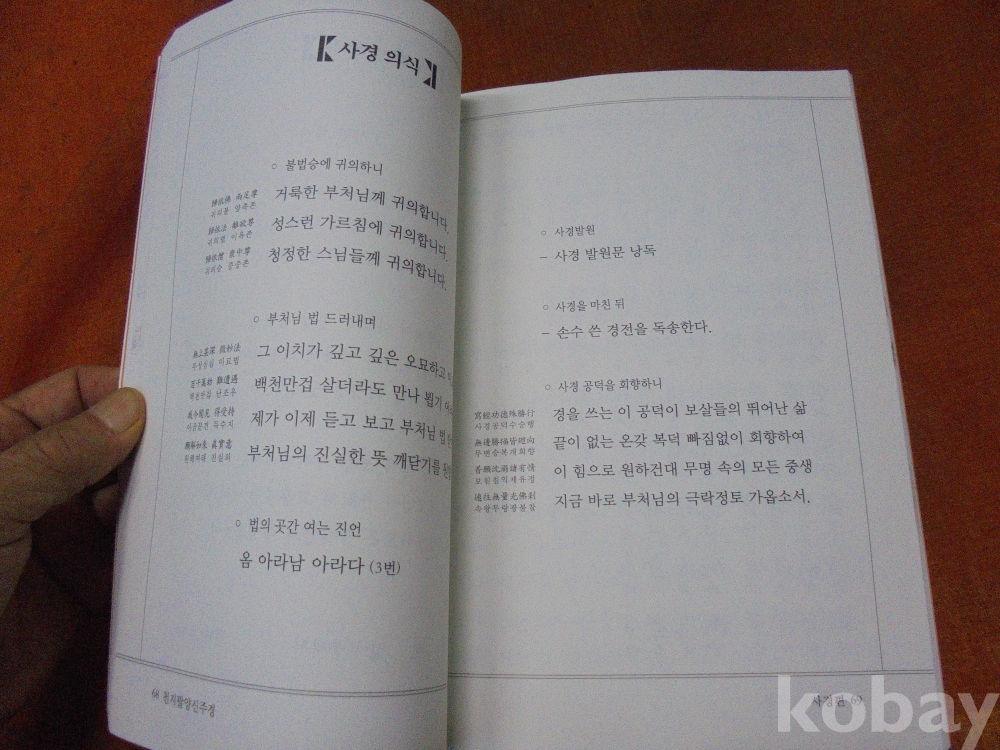 【사경 의식】
○ 불법승에 귀의하니
歸依佛 兩足尊
귀의불 양족존
거룩한 부처님께 귀의합니다.
歸依法 離欲尊
귀의법 이욕존
성스런 가르침에 귀의합니다.
歸依僧 衆中尊
귀의승 중중존
청정한 스님들께 귀의합니다.
○ 부처님 법 드러내며
無上甚深 微妙法
무상심심 미묘법
그 이치가 깊고 깊은 오묘하고
百千萬劫 難遭遇
백천만겁 난조우
백천만겁 살더라도 만나 뵙기
我今聞見 得受持
아금문견 득수지
제가 이제 듣고 보고 부처님 법
願解如來 眞實意
원해여래 진실의
부처님의 진실한 뜻 깨닫기를
○ 법의 곳간 여는 진언
옴 아라남 아라다 (3번)
68 천지팔양신주경
○ 사경발원
– 사경 발원문 낭독
○ 사경을 마친 뒤
– 손수 쓴 경전을 독송한다.
○ 사경 공덕을 회향하니
寫經功德殊勝行
사경공덕수승행
경을 쓰는 이 공덕이 보살들의 뛰어난 삶
無邊勝福皆廻向
무변승복개회향
끝이 없는 온갖 복덕 빠짐없이 회향하여
普願沈溺諸有情
보원침익제유정
이 힘으로 원하건대 무명 속의 모든 중생
速往無量光佛刹
속왕무량광불찰
지금 바로 부처님의 극락정토 가옵소서.
사경편 69
kobay